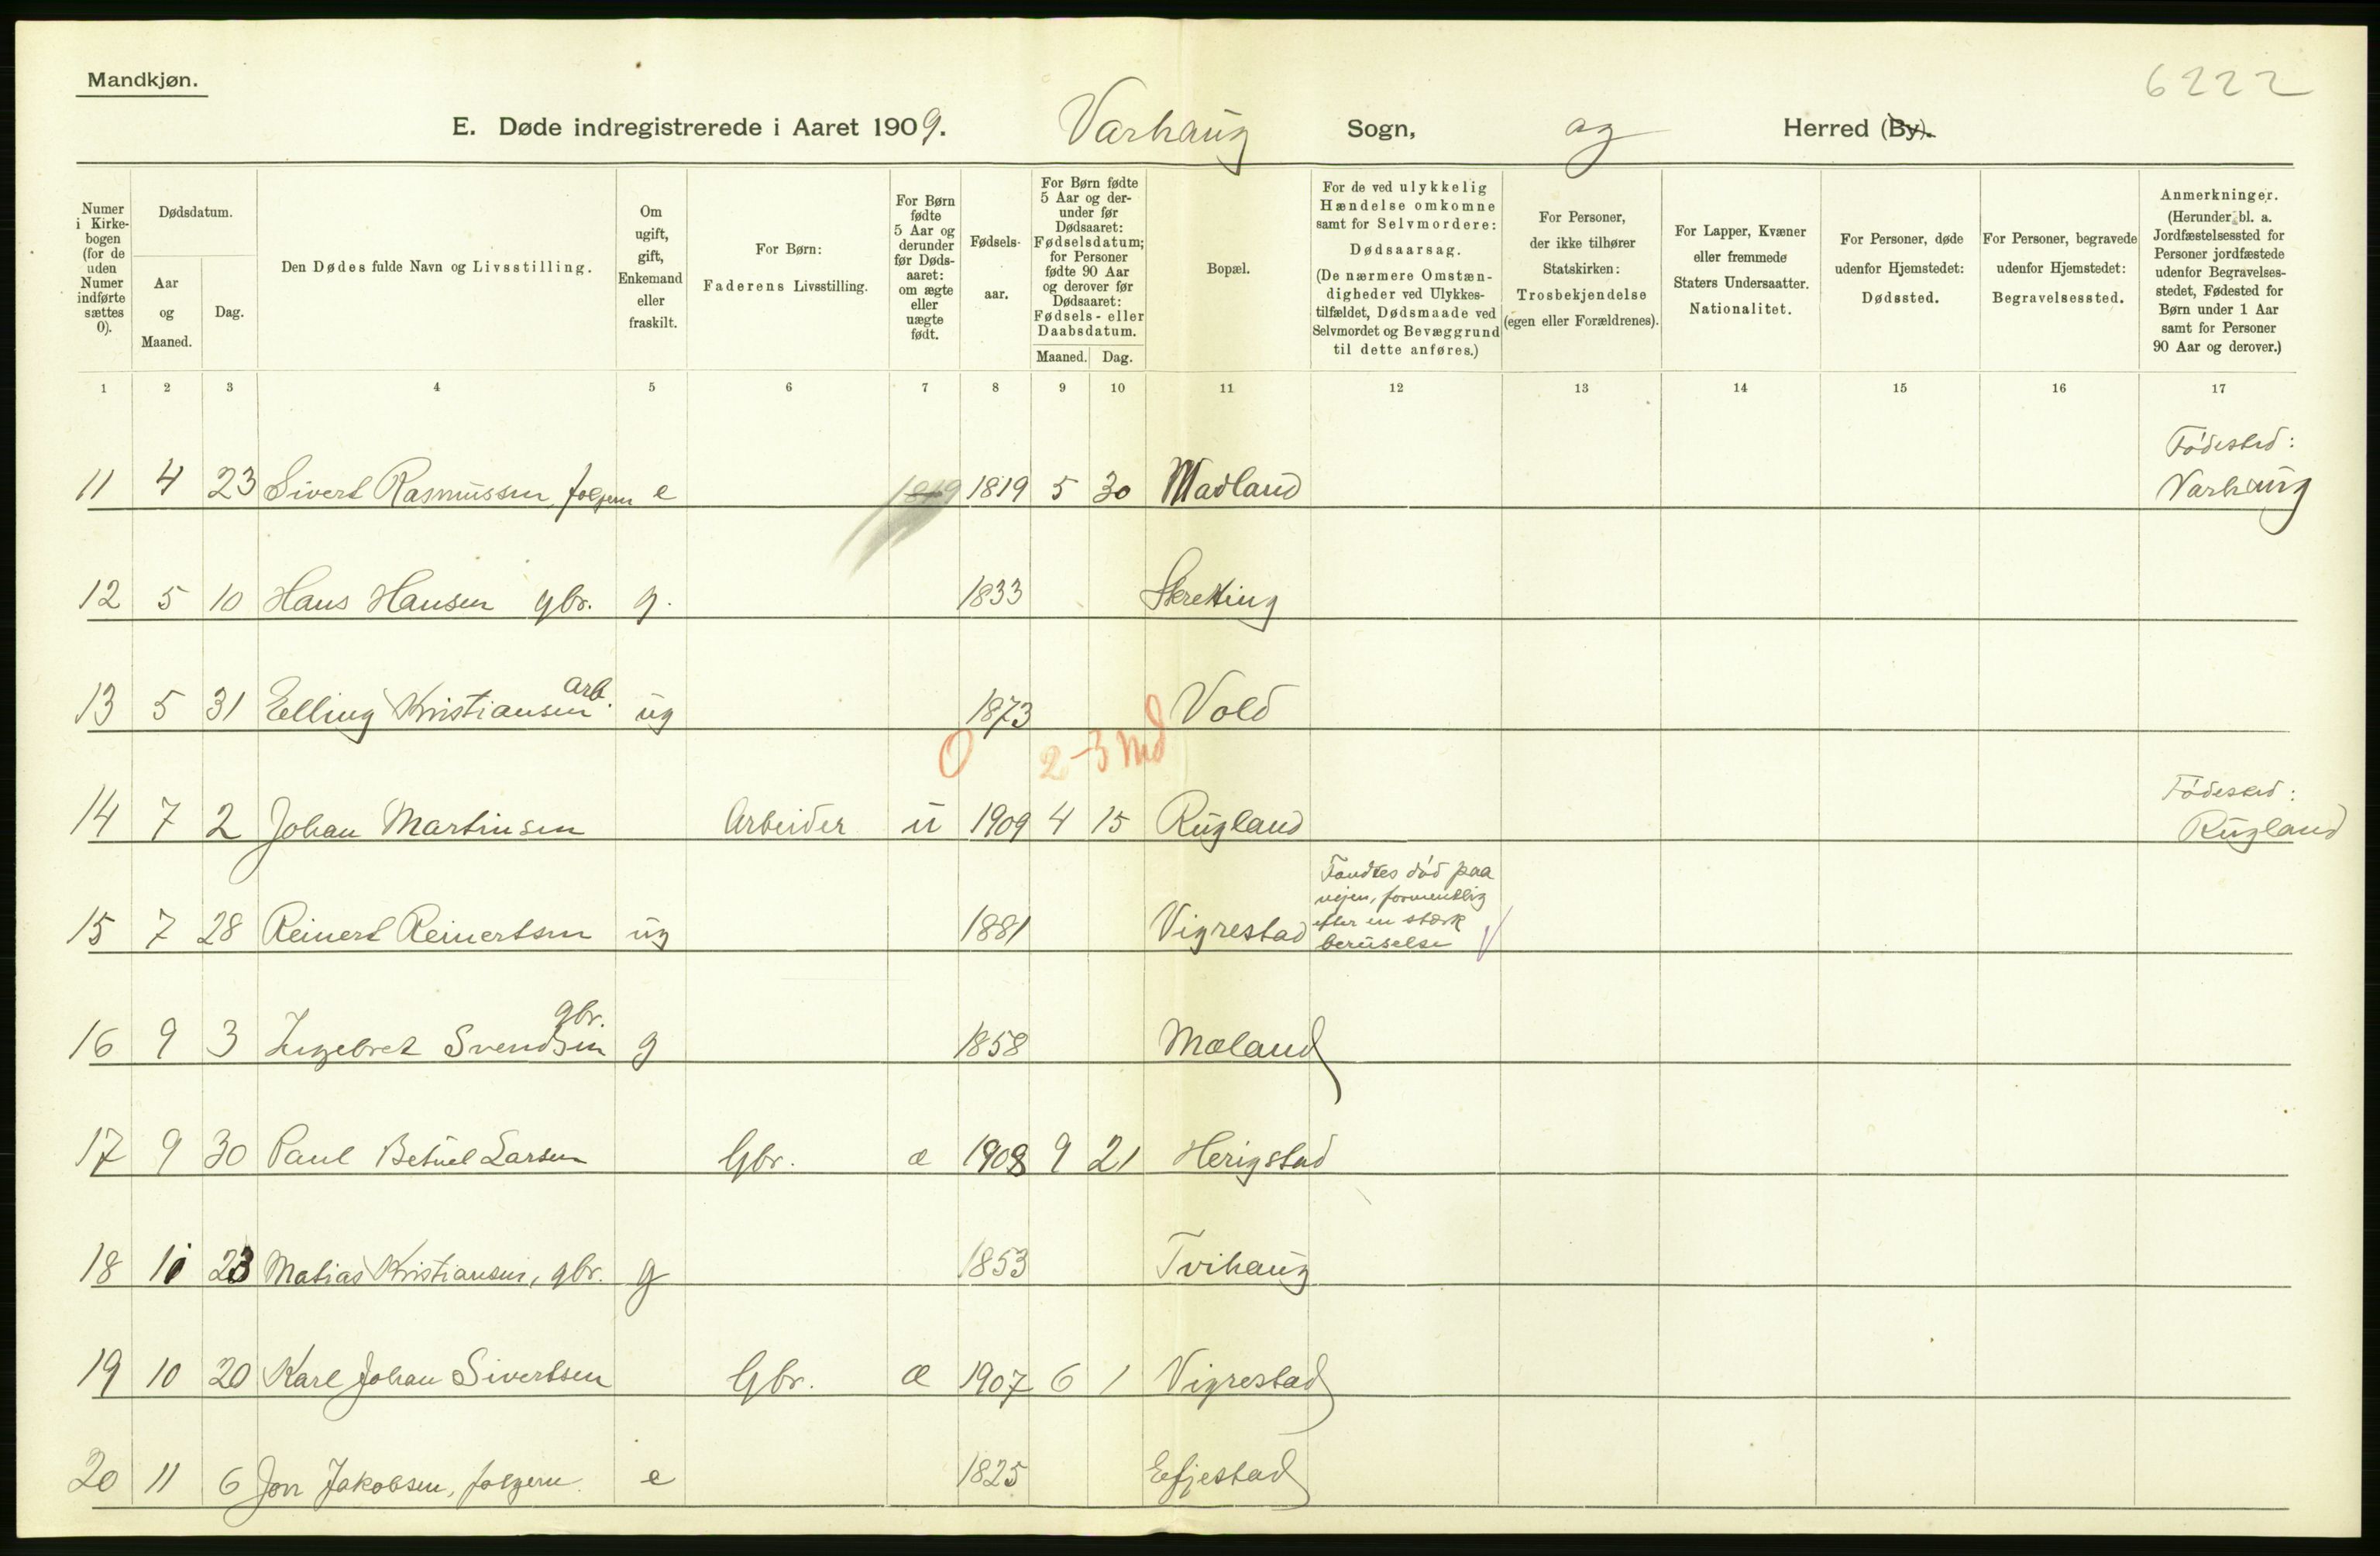 Mandkjøn.
6222
E. Døde indregistrerede i Aaret 1909. Varhaug Sogn, og Herred (By).
Numer i Kirkebogen (for de uden Numer indførte sættes 0).
Dødsdatum.
Aar og Maaned.
Dag.
Den Dødes fulde Navn og Livsstilling.
Om ugift, gift, Enkemand eller fraskilt.
For Børn: Faderens Livsstilling.
For Børn fødte 5 Aar og derunder før Dødsaaret: om ægte eller uægte født.
Fødselsaar.
For Børn fødte 5 Aar og derunder før Dødsaaret: Fødselsdatum; for Personer fødte 90 Aar og derover før Dødsaaret: Fødsels- eller Daabsdatum.
Maaned. Dag.
Bopæl.
For de ved ulykkelig Hændelse omkomne samt for Selvmordere: Dødsaarsag. (De nærmere Omstændigheder ved Ulykkestilfældet, Dødsmaade ved Selvmordet og Bevæggrund til dette anføres.)
For Personer, der ikke tilhører Statskirken: Trosbekjendelse (egen eller Forældrenes).
For Lapper, Kvæner eller fremmede Staters Undersaatter. Nationalitet.
For Personer, døde udenfor Hjemstedet: Dødssted.
For Personer, begravede udenfor Hjemstedet: Begravelsessted.
Anmerkninger. (Herunder bl. a. Jordfæstelsessted for Personer jordfæstede udenfor Begravelsesstedet, Fødested for Børn under 1 Aar samt for Personer 90 Aar og derover.)
1 2 3 4 5 6 7 8 9 10 11 12 13 14 15 16 17
Fødested:
11 4 23 Sivert Rasmussen, folgem e 1819 1819 5 30 Madland Varhaug
12 5 10 Hans Hansen gbr. g. 1833 Skretting
arb.
13 5 31 Elling Kristiansen ug 1873 Vold
0 2-3 md
Fødested:
14 7 2 Johan Martinsen Arbeider u 1909 4 15 Rugland Rugland
Fandtes død paa
vejen, formentlig
efter en stærk
15 7 28 Reinert Reinertsen ug 1881 Vigrestad beruselse
gbr.
16 9 3 Ingebret Svendsen g 1858 Mæland
17 9 30 Paul Betuel Larsen Gbr. æ 1908 9 21 Herigstad
18 10 23 Matias Kristiansen, gbr. g 1853 Tvihaug
19 10 20 Karl Johan Sivertsen Gbr. æ 1907 6 1 Vigrestad
20 11 6 Jon Jakobsen, folgem. e 1825 Eefjestad